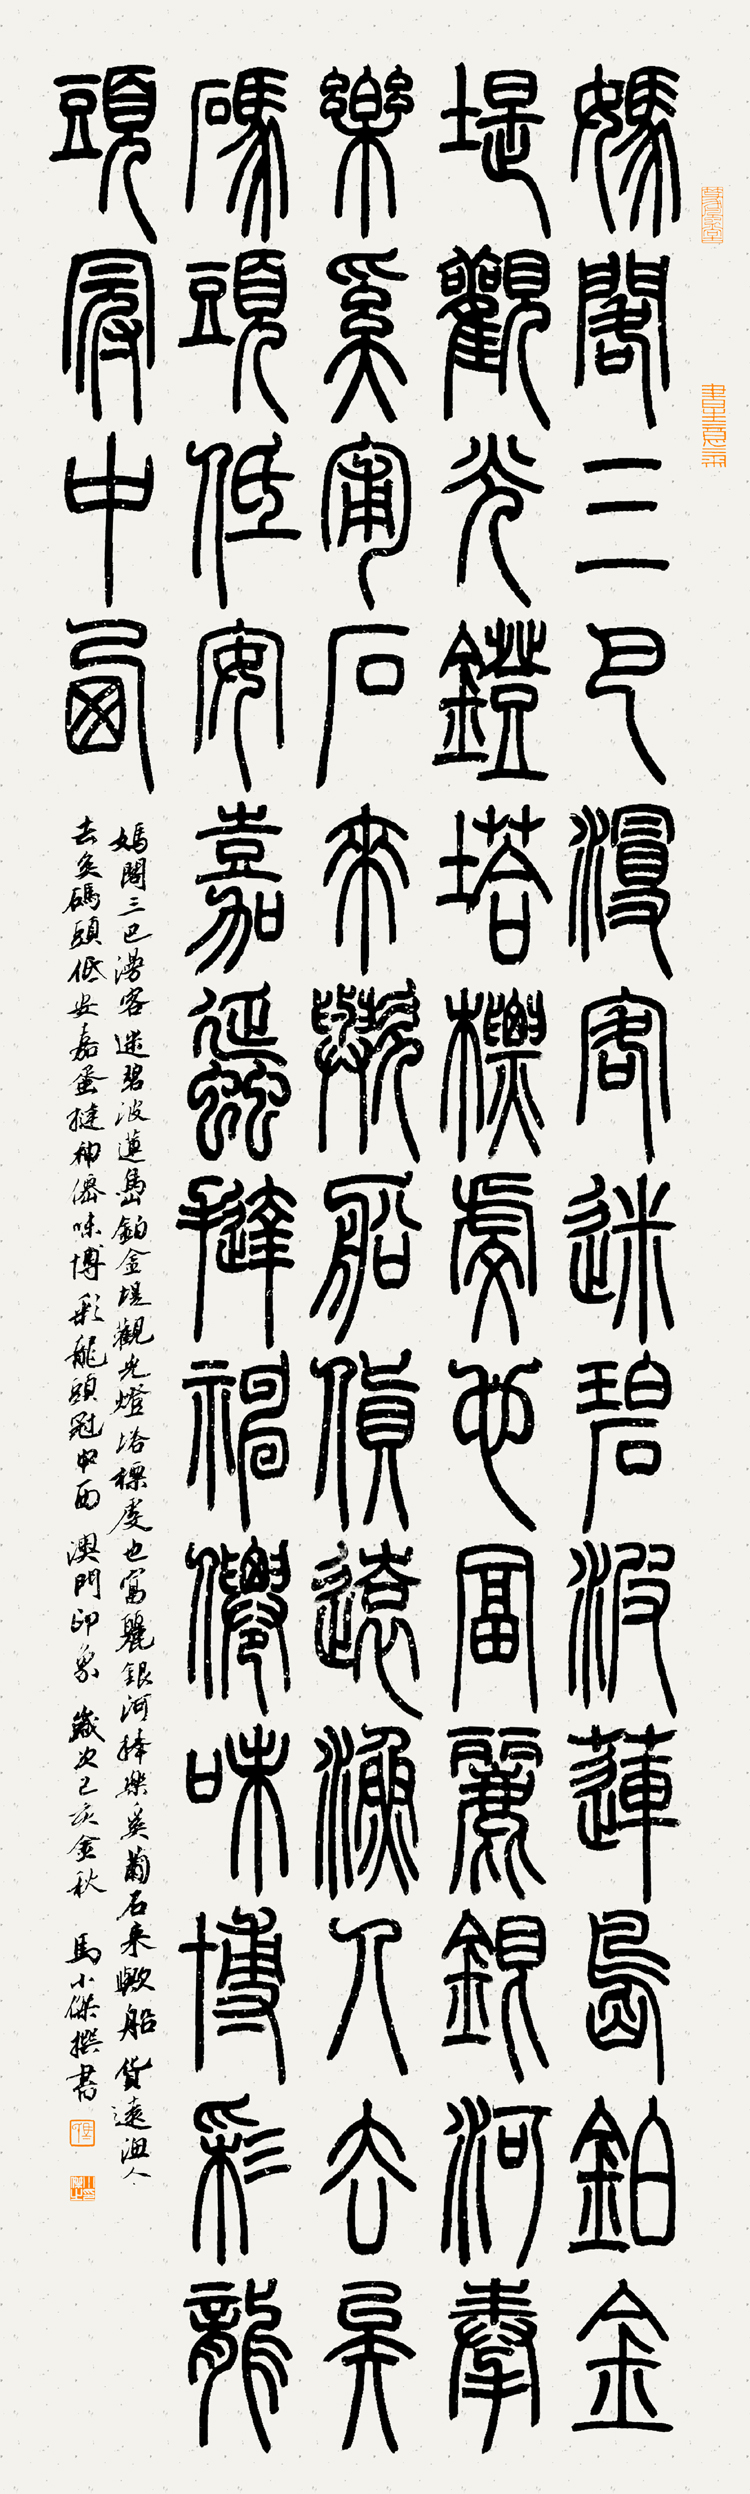 媽閣三巴漫客迷碧波蓮島鉑金
堤觀光鐙塔標處也富麗銀河捧
樂奚葡石來轍船貨遠漁人去矣
碼頭低安嘉蜑撻神僊味博彩龍
頭冠中西
媽閣三巴漫客迷碧波蓮島鉑金堤觀光燈塔標處也富麗銀河捧樂奚葡石來轍船貨遠漁人
去矣碼頭低安嘉蛋撻神僊味博彩龍頭冠中西 澳門印象 歲次己亥金秋 馬小傑撰書